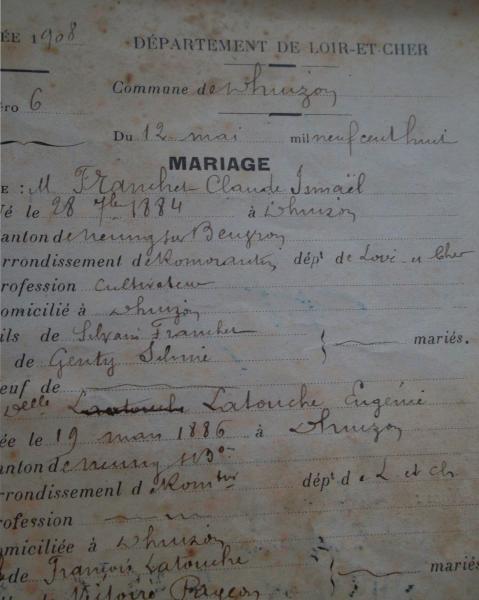 ÉE 1908 DÉPARTEMENT DE LOIR-ET-CHER
Commune de Dhuizon
éro 6
Du 12 mai mil neuf cent huit
MARIAGE
E : M Franchet Claude Ismaël
Né le 28 7bre 1884 à Dhuizon
anton de Neung sur Beuvron
rrondissement de Romorantin dépt de Loir et Cher
rofession Cultivateur
omicilié à Dhuizon
ils de Silvain Franchet
de Genty Silvine mariés.
euf de
Delle Latouche Latouche Eugénie
ée le 19 mars 1886 à Dhuizon
anton de Neung s/ Bon
rrondissement de Romtin dépt de L et Ch
rofession
omiciliée à Dhuizon
de François Latouche
de Victoire Pageon mariés